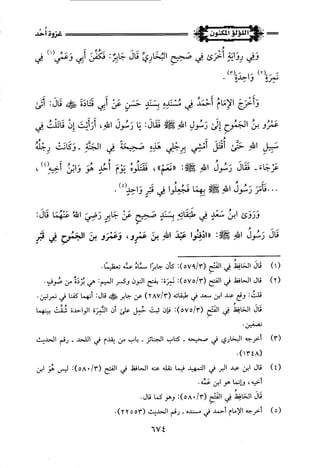 اللؤلؤ المكنون
غزوة أحد
وَفِي رِوَايَةٍ أُخْرَى فِي صَحِيحِ البُخَارِيِّ قَالَ جَابِرٌ: فَكُفِّنَ أَبِي وَعَمِّي (١) فِي
نَمِرَةٍ (٢) وَاحِدَةٍ (٣).
وَأَخْرَجَ الإِمَامُ أَحْمَدُ فِي مُسْنَدِهِ بِسَنَدٍ حَسَنٍ عَنْ أَبِي قَتَادَةَ ﷺ قَالَ: أَتَى
عَمْرُو بنُ الجَمُوحِ إِلَى رَسُولِ اللهِ ﷺ فَقَالَ: يَا رَسُولَ اللهِ، أَرَأَيْتَ إِنْ قَاتَلْتُ فِي
سَبِيلِ اللهِ حَتَّى أُقْتَلَ أَمْشِي بِرِجْلِي هَذِهِ صَحِيحَةً فِي الجَنَّةِ - وَكَانَتْ رِجْلُهُ
عَرْجَاءَ - فَقَالَ رَسُولُ اللهِ ﷺ: «نَعَمْ»، فَقَتَلُوهُ يَوْمَ أُحُدٍ هُوَ وَابْنُ أَخِيهِ (٤)،
... فَأَمَرَ رَسُولُ اللهِ ﷺ بِهِمَا فَجُعِلُوا فِي قَبْرٍ وَاحِدٍ (٥).
وَرَوَى ابنُ سَعْدٍ فِي طَبَقَاتِهِ بِسَنَدٍ صَحِيحٍ عَنْ جَابِرٍ رَضِيَ اللهُ عَنْهُمَا قَالَ:
قَالَ رَسُولُ اللهِ ﷺ: «ادْفِنُوا عَبْدَ اللهِ بنَ عَمْرٍو، وَعَمْرَو بنَ الجَمُوحِ فِي قَبْرٍ
(١) قَالَ الحَافِظُ فِي الفَتْحِ (٥٧٩/٣): كأن جابرًا سمَّاهُ عمَّه تعظيمًا.
(٢) قال الحافظ في الفتح (٥٧٥/٣): نَمِرَة: بفتح النون وكسر الميم: هي بُردَةٌ من صُوفٍ.
قلتُ: وقع عند ابن سعد في طبقاته (٢٨٧/٣) عن جابر قال: أنهما كفنا في نمرتين.
قال الحَافِظُ في الفتحِ (٥٧٥/٣): فإن ثبت حُمِل على أن النَّمِرَة الواحدة شُقَّت بينهما
نصفين.
(٣) أخرجه البخاري في صحيحه - كتاب الجنائز - باب من يقدم في اللحد - رقم الحديث
(١٣٤٨).
(٤) قال ابن عبد البر في التمهيد فيما نقله عنه الحافظ في الفتح (٥٨٠/٣): ليس هو ابن
أخيه، وإنما هو ابن عمه.
قَالَ الحَافِظُ فِي الفَتْحِ (٥٨٠/٣): وهو كما قال.
(٥) أخرجه الإمام أحمد في مسنده - رقم الحديث (٢٢٥٥٣).
٦٧٤